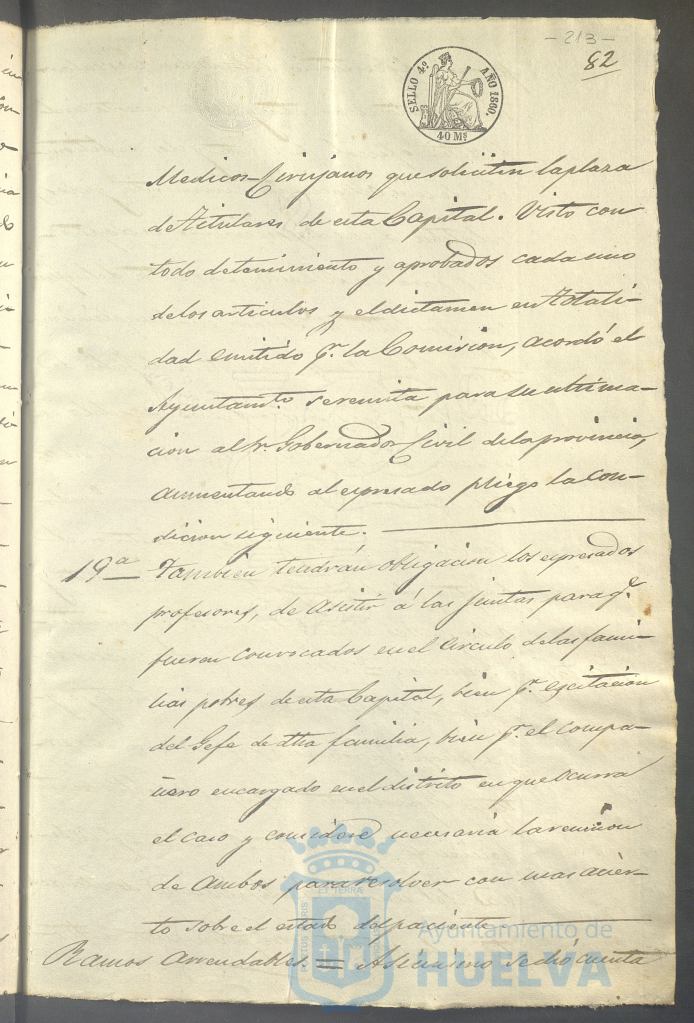 - 213 -
82
SELLO 4º AÑO 1860.
40 Ms
Medicos-Cirujanos que soliciten la plaza
de Titulares de esta Capital. Visto con
todo detenimiento y aprobados cada uno
de los articulos y el dictamen en totali-
dad emitido pr. la Comision, acordó el
Ayuntamto. se remita para su ultima-
cion al Sr. Gobernador Civil de la provincia,
aumentando al espresado pliego la con-
dicion siguiente.
19ª Tambien tendrán obligacion los espresados
profesores, de asistir á las juntas para qe.
fueren convocados en el circulo de las fami-
lias pobres de esta Capital, bien pr. escitacion
del Gefe de dha familia, bien pr. el compa-
ñero encargado en el distrito en que ocurra
el caso y considere necesaria la reunion
de ambos para resolver con mas acier-
to sobre el estado del paciente
Ramos arrendables = Asimismo se dió cuenta
PORTUS MARIS ET TERRÆ
Ayuntamiento de
HUELVA